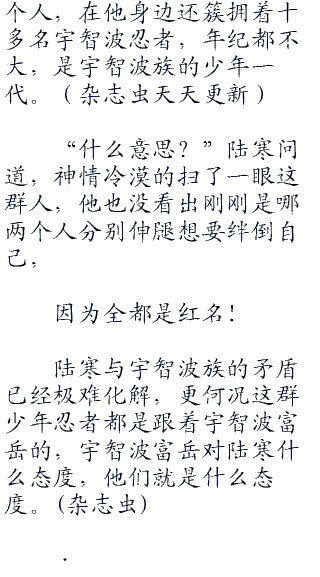 个人，在他身边还簇拥着十
多名宇智波忍者，年纪都不
大，是宇智波族的少年一
代。（杂志虫天天更新）
“什么意思？”陆寒问
道，神情冷漠的扫了一眼这
群人，他也没看出刚刚是哪
两个人分别伸腿想要绊倒自
己，
因为全都是红名！
陆寒与宇智波族的矛盾
已经极难化解，更何况这群
少年忍者都是跟着宇智波富
岳的，宇智波富岳对陆寒什
么态度，他们就是什么态
度。(杂志虫)
.